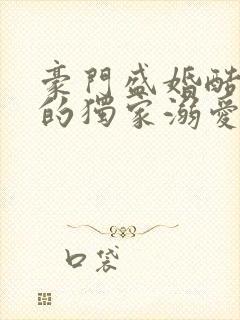 豪門盛婚酷
的獨家溺愛
口袋